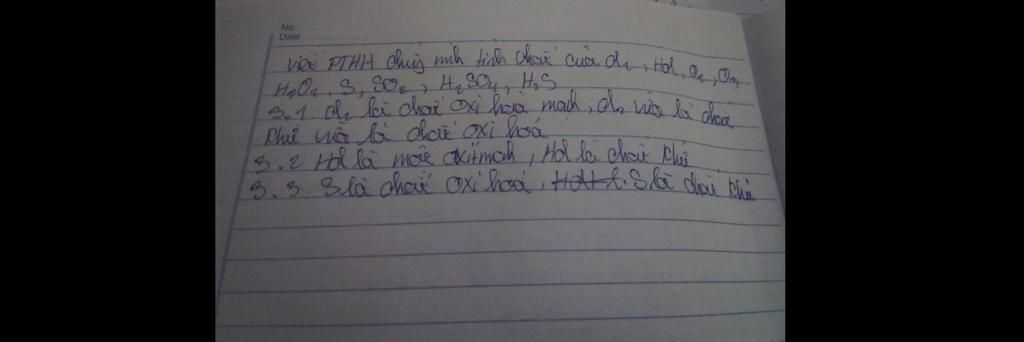 No.
Date
Viết PTHH chứng minh tính chất của Cl₂, HCl, O₂, O₃,
H₂O₂, S, SO₂, H₂SO₄, H₂S
3.1. Cl₂ là chất oxi hoá mạnh, Cl₂ vừa là chất
khử vừa là chất oxi hoá
3.2 HCl là một axit mạnh, HCl là chất khử
3.3. S là chất oxi hoá, S là chất khử